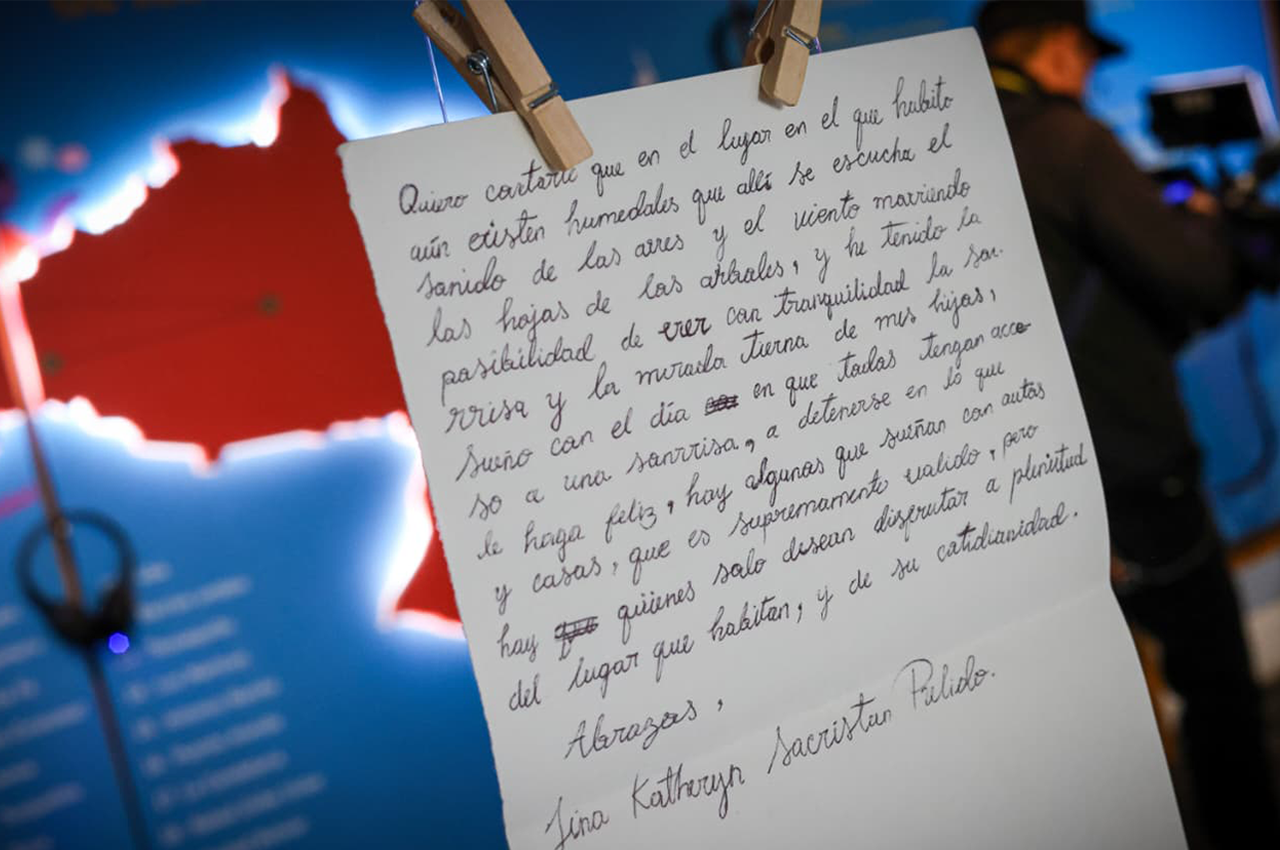 Quiero contarte que en el lugar en el que habito
aún existen humedales que allí se escucha el
sonido de las aves y el viento moviendo
las hojas de los arboles, y he tenido la
posibilidad de creer con tranquilidad la son-
rrisa y la mirada tierna de mis hijos,
sueño con el día en que todos tengan acce-
so a una sonrrisa, a detenerse en lo que
le haga feliz, hay algunos que sueñan con autos
y casas, que es supremamente valido, pero
hay quienes solo desean disfrutar a plenitud
del lugar que habitan, y de su cotidianidad.
Abrazos,
Katheryn Sacristan Pulido.